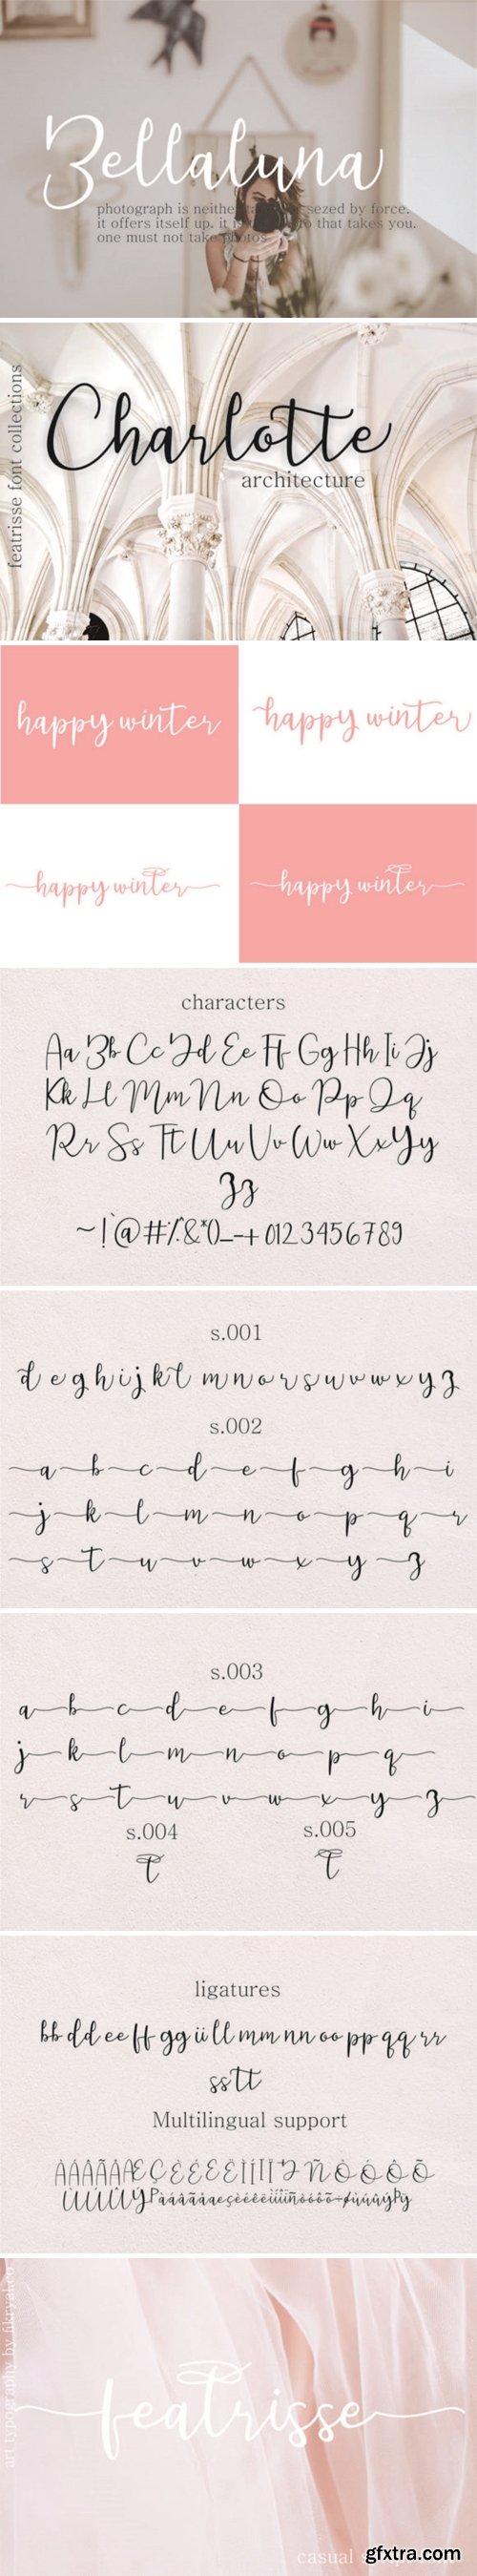 Bellaluna
photograph is neithe sezed by force.
it offers itself up. it that takes you.
one must not take photos
featrisse font collections
Charlotte
architecture
happy winter
happy winter
happy winter
happy winter
characters
Aa Bb Cc Dd Ee Ff Gg Hh Ii Jj
Kk Ll Mm Nn Oo Pp Qq
Rr Ss Tt Uu Vv Ww Xx Yy
Zz
~!`@#/.%&*()_-+ 0123456789
s.001
d e g h i j k t l m n o r s u v w x y z
s.002
a b c d e f g h i
j k l m n o p q r
s t u v w x y z
s.003
a b c d e f g h i
j k l m n o p q
r s t u v w x y z
s.004 s.005
t t
ligatures
bb dd ee ff gg ii ll mm nn oo pp qq rr
ss tt
Multilingual support
art typography by fikryal.co
featrisse
casual
gfxtra.com